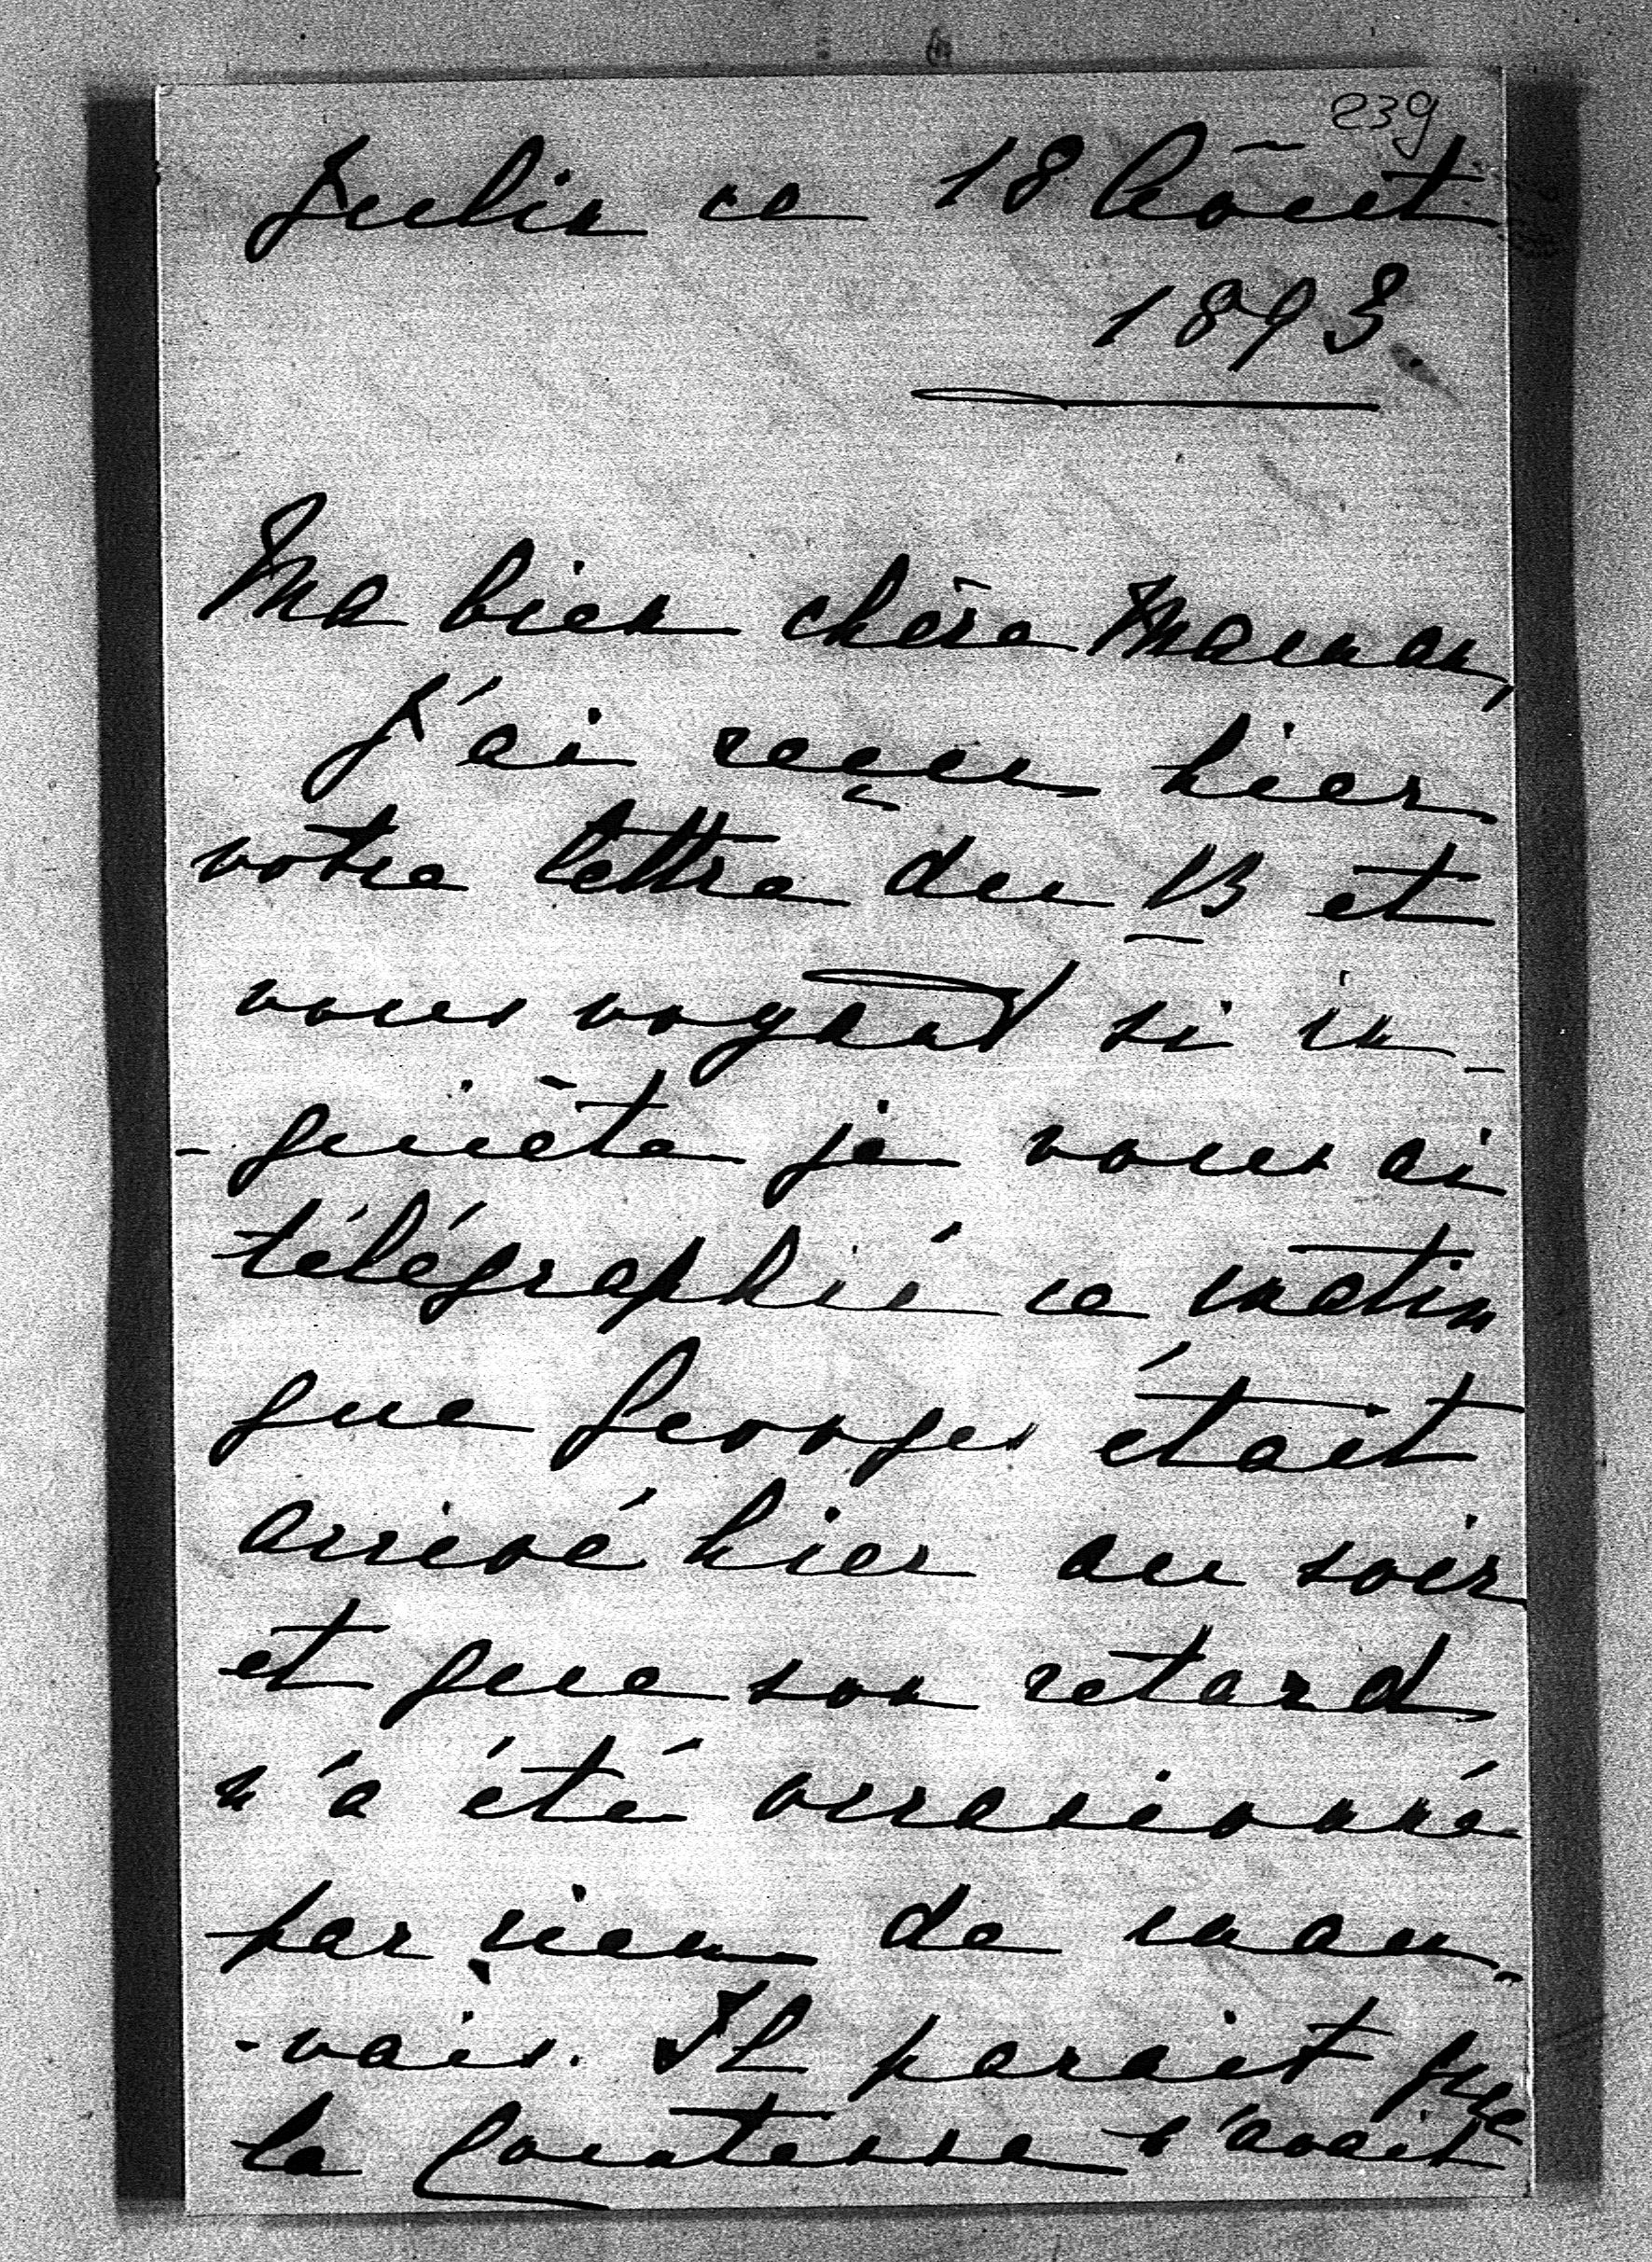 239
Julin ce 18 Août
1893.
Ma bien chère Maman,
J'ai reçu hier
votre lettre du 13 et
vous voyant si in-
-quiète je vous ai
télégraphié ce matin
que Georges était
arrivé hier au soir
et que son retard
n'a été occasionné
par rien de mau-
-vais. Il parait que
la Comtesse l'avait